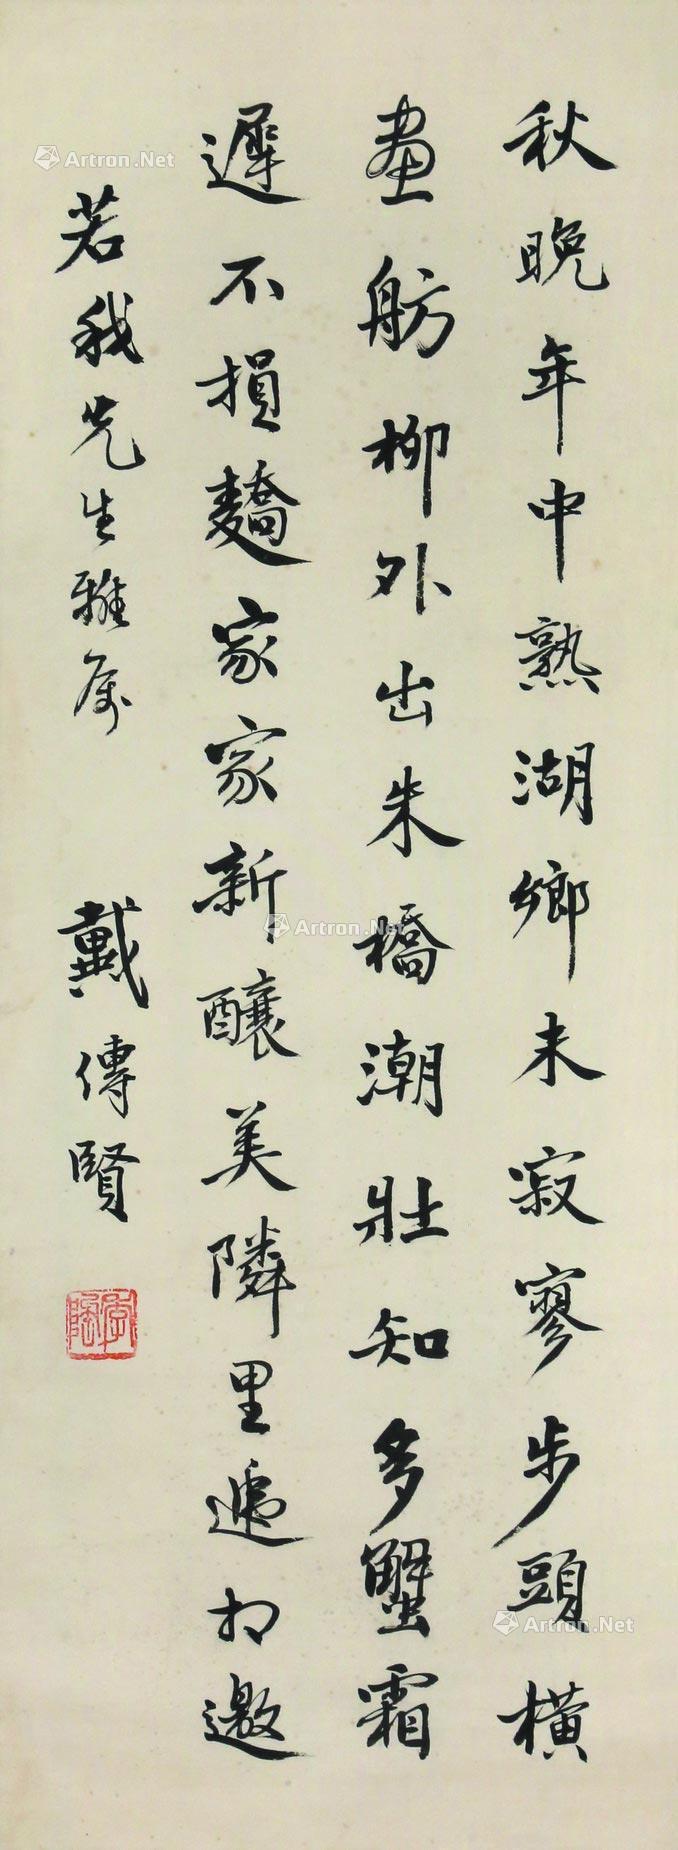 秋晚年中熟湖鄉未寂寥步頭橫
畫舫柳外出朱橋潮壯知多蟹霜
遲不損蕎家家新釀美隣里遞相邀
若我先生雅屬
戴傳賢
Artron.Net
Artron.Net
Artron.Net